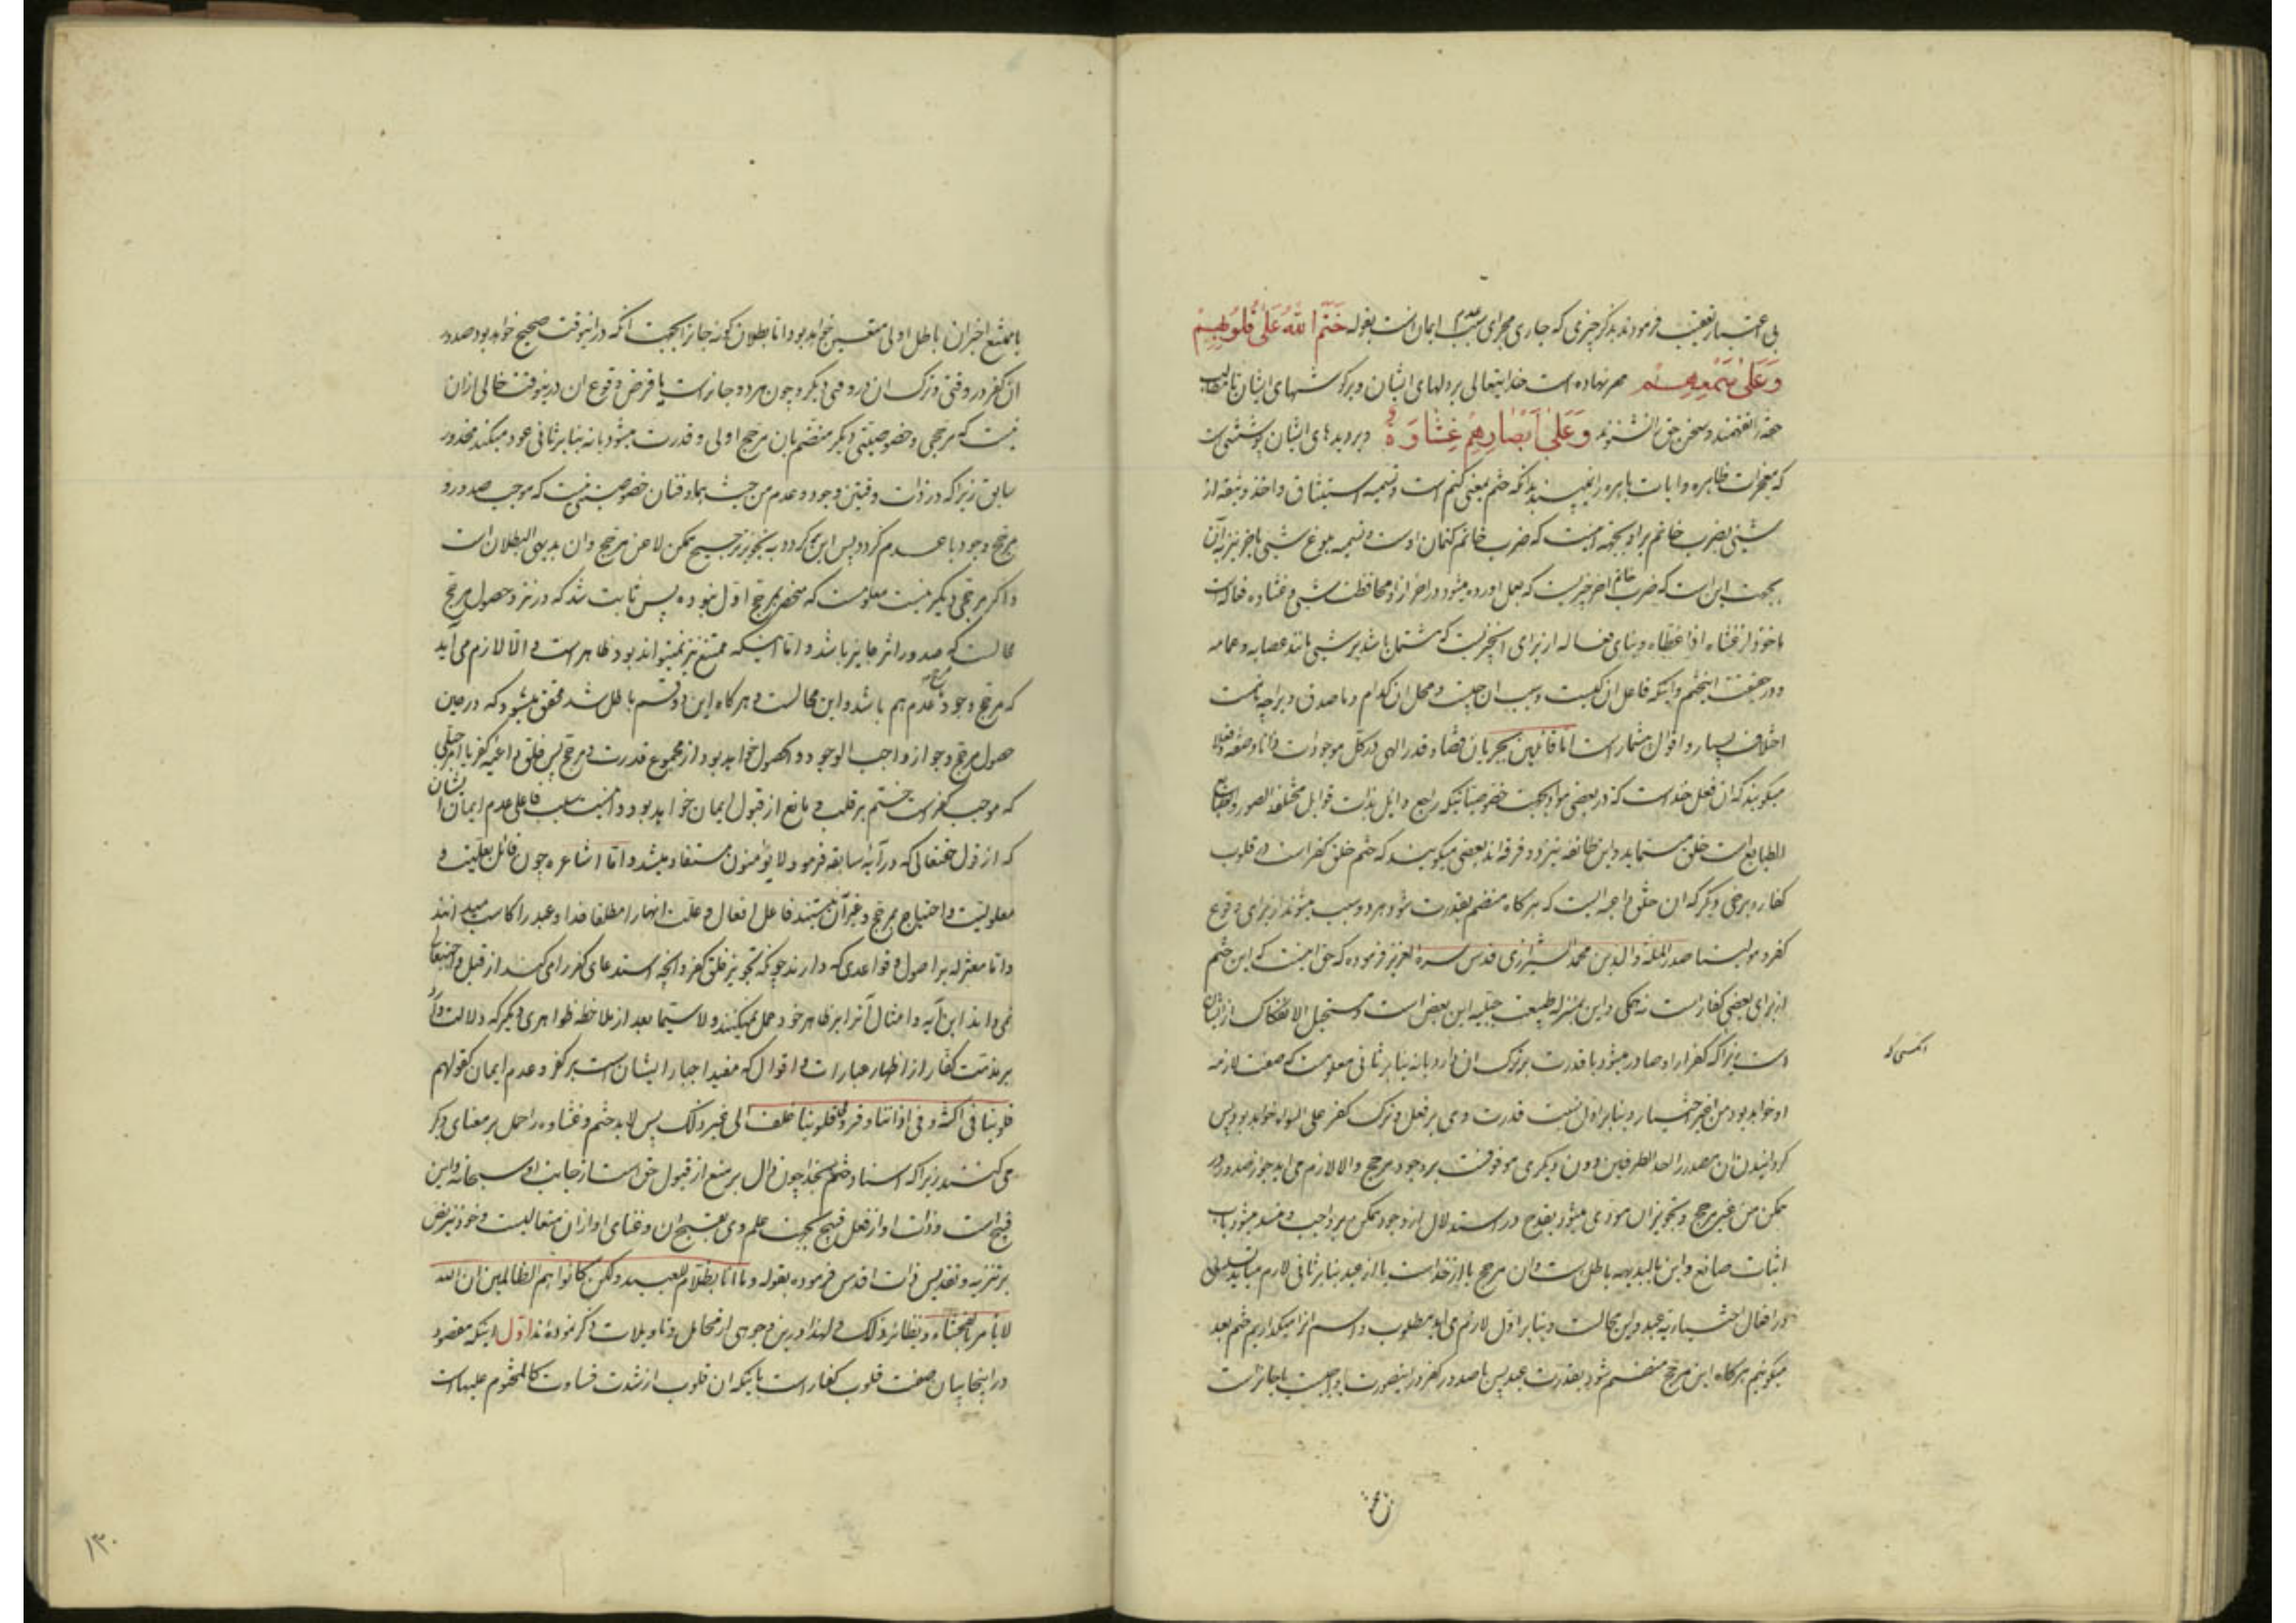 بی اعتبار تعقیب فرمودند بذکر چیزی که جاری مجرای سبب عدم ایمان است بقوله خَتَمَ اللّٰهُ عَلٰی قُلُوبِهِمْ
وَعَلٰی سَمْعِهِمْ مهر نهاده است خدایتعالی بر دلهای ایشان و بر کوشهای ایشان تا مطالب
حقه را نفهمند و سخن حق را نشنوند وَعَلٰی اَبْصَارِهِمْ غِشَاوَةٌ و بر دیده‌های ایشان پوششی است
که معجزات ظاهره و ایات باهره را نمی‌بینند بدانکه ختم بمعنی کتم است و تسمیه استیثاق و اخذ وثیقه از
شیئی بضرب خاتم بر او بجهة انست که ضرب خاتم کتمان اوست و تسمیه بلوغ شیئی باخر نیز بآن
بجهت این است که ضرب خاتم اخر چیزیست که بعمل اورده میشود در احراز او محافظت شیئی و غشاوه فعاله است
ماخوذ از غشاه اذا غطاه و بنای فعاله از برای انچیزیست که مشتمل باشد بر شیئی مانند عصابه و عمامه
و در حقیقت اینختم و اینکه فاعل ان کیست و سبب ان چیست و محل ان کدام و ما صدق و بر اچه است
اختلاف بسیار و اقوال بیشمار است اما قائلین بجریان قضا و قدر الهی در کل موجودات ذاتا و صفة و فعلا
میکویند که ان فعل خداست که در بعضی مواد بجهت خصوصیاتیکه راجع و ایل بذات قوابل مختلفة الصور و طبایع
الطبایع است خلق مینماید و این طائفه نیز دو فرقه اند بعضی میکویند که ختم خلق کفر است در قلوب
کفار و برخی دیگر که ان خلق داعیه ایست که هرکاه منضم بقدرت شود هر دو سبب میشوند از برای وقوع
کفر و مولینا صدر الملة و الدین محمد الشیرازی قدس سره العزیز فرموده که حق اینست که این ختم
از برای بعضی کفار است نه همکی و این بمنزله طبیعت جبلیه این بعض است و مستحیل الانفکاک از ایشان
است زیرا که کفر از او صادر میشود با قدرت بر ترک ان دارد یا نه بنا بر ثانی معلومست که صفت لازمه
او خواهد بود من غیر اختیار و بنا بر اول نسبت قدرت وی بر فعل و ترک کفر علی السویه خواهد بود پس
کردانیدن ان مصدر احد الطرفین دون دیگری موقوفست بر وجود مرجح و الا لازم می اید جواز صدور
ممکن من غیر مرجح و تجویز ان مؤدی میشود بقدح در استدلال از وجود ممکن بر واجب و منسد میشود باب
اثبات صانع و این بالبدیهه باطل است و ان مرجح یا از خداست یا از عبد بنا بر ثانی لازم میاید تسلسل
در افعال اختیاریه عبد و این محالست و بنا بر اول لازم می اید مطلوب و اسم انرا میکذاریم ختم بعد
میکوئیم هرکاه این مرجح منضم شود بقدرت عبد پس یا صدور کفر در اینصورت یا واجبست یا جائز است
یا ممتنع اخیران باطل اولی متعین خواهد بود اما بطلان کونه جائزا بجهت انکه در اینوقت صحیح خواهد بود صدور
ان کفر در وقتی و ترک ان در وقتی دیگر و چون هر دو جائز است پا فرض وقوع ان در ینوقت خالی از ان
نیست که مرجحی و خصوصیتی دیگر منضم بان مرجح اولی و قدرت میشود یا نه بنا بر ثانی عود میکند محذور
سابق زیرا که در ذات وقتین وجود و عدم من حیث هما وقتان خصوصیتی نیست که موجب صدور و
مرجح وجود یا عدم کردد پس این کردد به تجویز ترجیح ممکن لا عن مرجح و ان بدیهی البطلان است
و اکر مرجحی دیکر نیست معلومست که منحصر بمرجح اول نبوده پس ثابت شد که در نزد حصول مرجح
محالست که صدور اثر جایز باشد و اما اینکه ممتنع نیز نمیتواند بود ظاهر است و الا لازم می آید
که مرجح وجود مرجح عدم هم باشد و این محالست و هر کاه این دو قسم باطل شد محقق میشود که در حین
حصول مرجح وجود ان واجب الوجود و الحصول خواهد بود از مجموع قدرت و مرجح پس خلق داعیه کفر یا امر جبلی
که موجب کفر است ختم بر قلب و مانع از قبول ایمان خواهد بود و اینست سبب فاعلی عدم ایمان ایشان
که از قول حقتعالی که در آیه سابقه فرمود لا یؤمنون مستفاد میشد و اما اشاعره چون قائل بعلیت و
معلولیت و احتیاج بمرجح و غیر آن نیستند فاعل افعال و علت انها را مطلقا خدا و عبد را کاسب میدانند
و اما معتزله بر اصول و قواعدی که دارند چونکه تجویز خلق کفر و انچه استدعای کفر را می کند از قبل حقتعالی
نمی دانند این آیه و امثال آنرا بر ظاهر خود حمل نمیکنند و لا سیما بعد از ملاحظه ظواهری دیگر که دلالت دارد
بر مذمت کفار از اظهار عبارات و اقوال که مفید اجبار ایشان است بر کفر و عدم ایمان کقولهم
قلوبنا فی اکنة و فی اذاننا وقر و قلوبنا غلف الی غیر ذلک پس لابد ختم و غشاوه را حمل بر معنای دیگر
می کنند زیرا که اسناد ختم بخدا چون دال بر منع از قبول حق است از جانب او سبحانه و این
قبیح است و ذات او از فعل قبیح بجهت علم وی بقبح ان و غنای او از ان متعالیست و خود نیز نص
بر تنزیه و تقدیس ذات اقدس فرموده بقوله و ما انا بظلام للعبید و لکن کانوا هم الظالمین ان الله
لا یامر بالفحشاء و نظائر ذلک و لهذا در این وجوهی از محامل و تاویلات ذکر نموده اند اول اینکه مقصود
در اینجا بیان صفت قلوب کفار است باینکه ان قلوب از شدت قساوت کالمختوم علیها است
۱۳۰